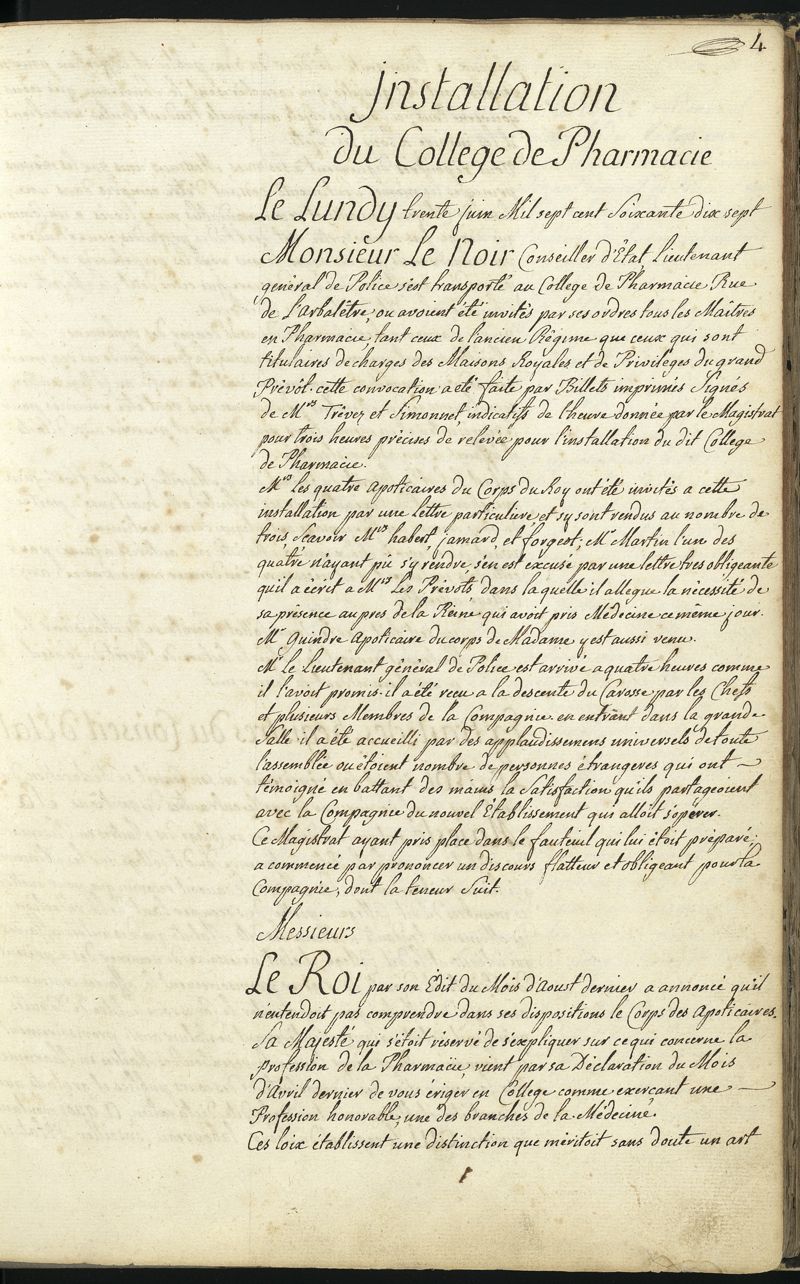 4
Installation
du College de Pharmacie
Le Lundy trente juin Mil sept cent Soixante dix sept
Monsieur Le Noir Conseiller d'État Lieutenant
général de Police s'est transporté au College de Pharmacie Rue
de L'arbalêtre, ou avoient été invités par ses ordres tous les Maîtres
en Pharmacie, tant ceux de l'ancien Régime que ceux qui sont
titulaires de charges des Maisons Royales et de Privileges du grand
Prévôt. cette convocation a été faite par Billets imprimés Signés
de Mrs Trévez et Simonnet, indicatifs de l'heure donnée par le Magistrat
pour trois heures précises de relevée pour l'installation du dit College
de Pharmacie.
Mrs les quatre apoticaires du Corps du Roy ont été invités a cette
installation par une lettre particuliere et s'y sont rendus au nombre de
trois Scavoir Mrs habert, jamard, et forgeot, Mr Martin l'un des
quatre n'ayant pû s'y rendre, s'en est excusé par une lettre tres obligeante
qu'il a écrit a Mrs Les Prévots dans la quelle il allegue la nécessité de
sa présence aupres de la Reine qui avoit pris Médecine ce même jour.
Mr Quindre apoticaire du corps de Madame y est aussi venu.
Mr le Lieutenant général de Police est arrivé a quatre heures comme
il l'avoit promis. il a été recu a la descente du Carosse par les Chefs
et plusieurs Membres de la Compagnie. en entrant dans la grande
Salle il a été accueilli par des applaudissemens universels de toute
l'assemblée ou étoient nombre de personnes étrangeres qui ont
témoigné en battant des mains la Satisfaction qu'ils partageoient
avec la Compagnie du nouvel Établissement qui alloit s'opérer.
Ce Magistrat ayant pris place dans le fauteuil qui lui étoit préparé,
a commencé par prononcer un discours flatteur et obligeant pour la
Compagnie, dont la teneur Suit.
Messieurs
Le Roi par son Édit du Mois d'Aoust dernier a annoncé qu'il
n'entendoit pas comprendre dans ses dispositions le Corps des Apoticaires.
Sa Majesté qui s'étoit réservé de s'expliquer sur ce qui concerne la
profession de la Pharmacie, vient par sa Déclaration du Mois
d'Avril dernier de vous ériger en College comme exercant une
Profession honorable, une des branches de la Médecine.
Ces loix établissent une distinction que méritoit sans doute un art